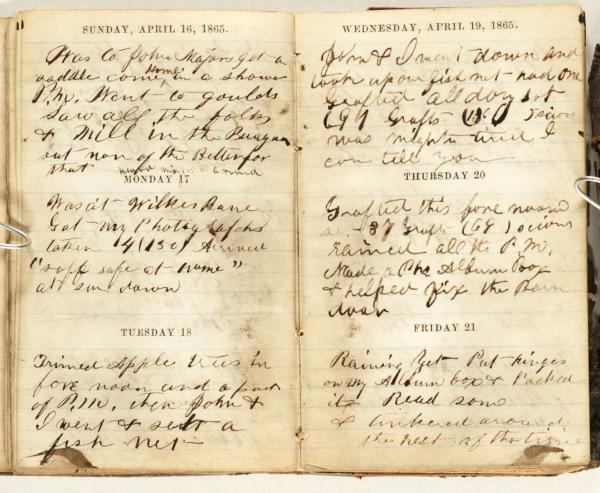 SUNDAY, APRIL 16, 1865.
Was to John Majors Got a
saddle coming home in a shower
P.M. Went to goulds
Saw all the folks
& Mill in the
but non of the Better for
that
MONDAY 17
Was at Wilkes Barre
Got my Photographs
taken 4 (150) Arived
"soff safe at home"
at sun down
TUESDAY 18
Trimed Apple trees in
fore noon and a part
of P.M. then John &
I went & set a
fish net
WEDNESDAY, APRIL 19, 1865.
John & I went down and
took upon fish net had one
Grafted all day Sot
69 Grafts scions
was mighty tired I
can tell you
THURSDAY 20
Grafted this fore noon
37 Grafts (69) scions
rained all the P.M.
Made a Pho Album Box
& helped fix the Barn
door
FRIDAY 21
Raining Yet Put hinges
on my Album box & Packed
it Read some
& tinkered around
the rest of the time